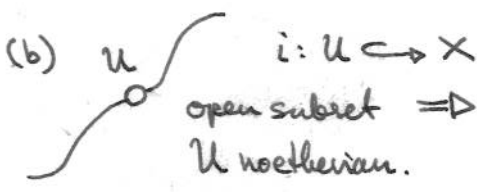 (b) U i: U ↪ X
open subset ⇒
U noetherian.